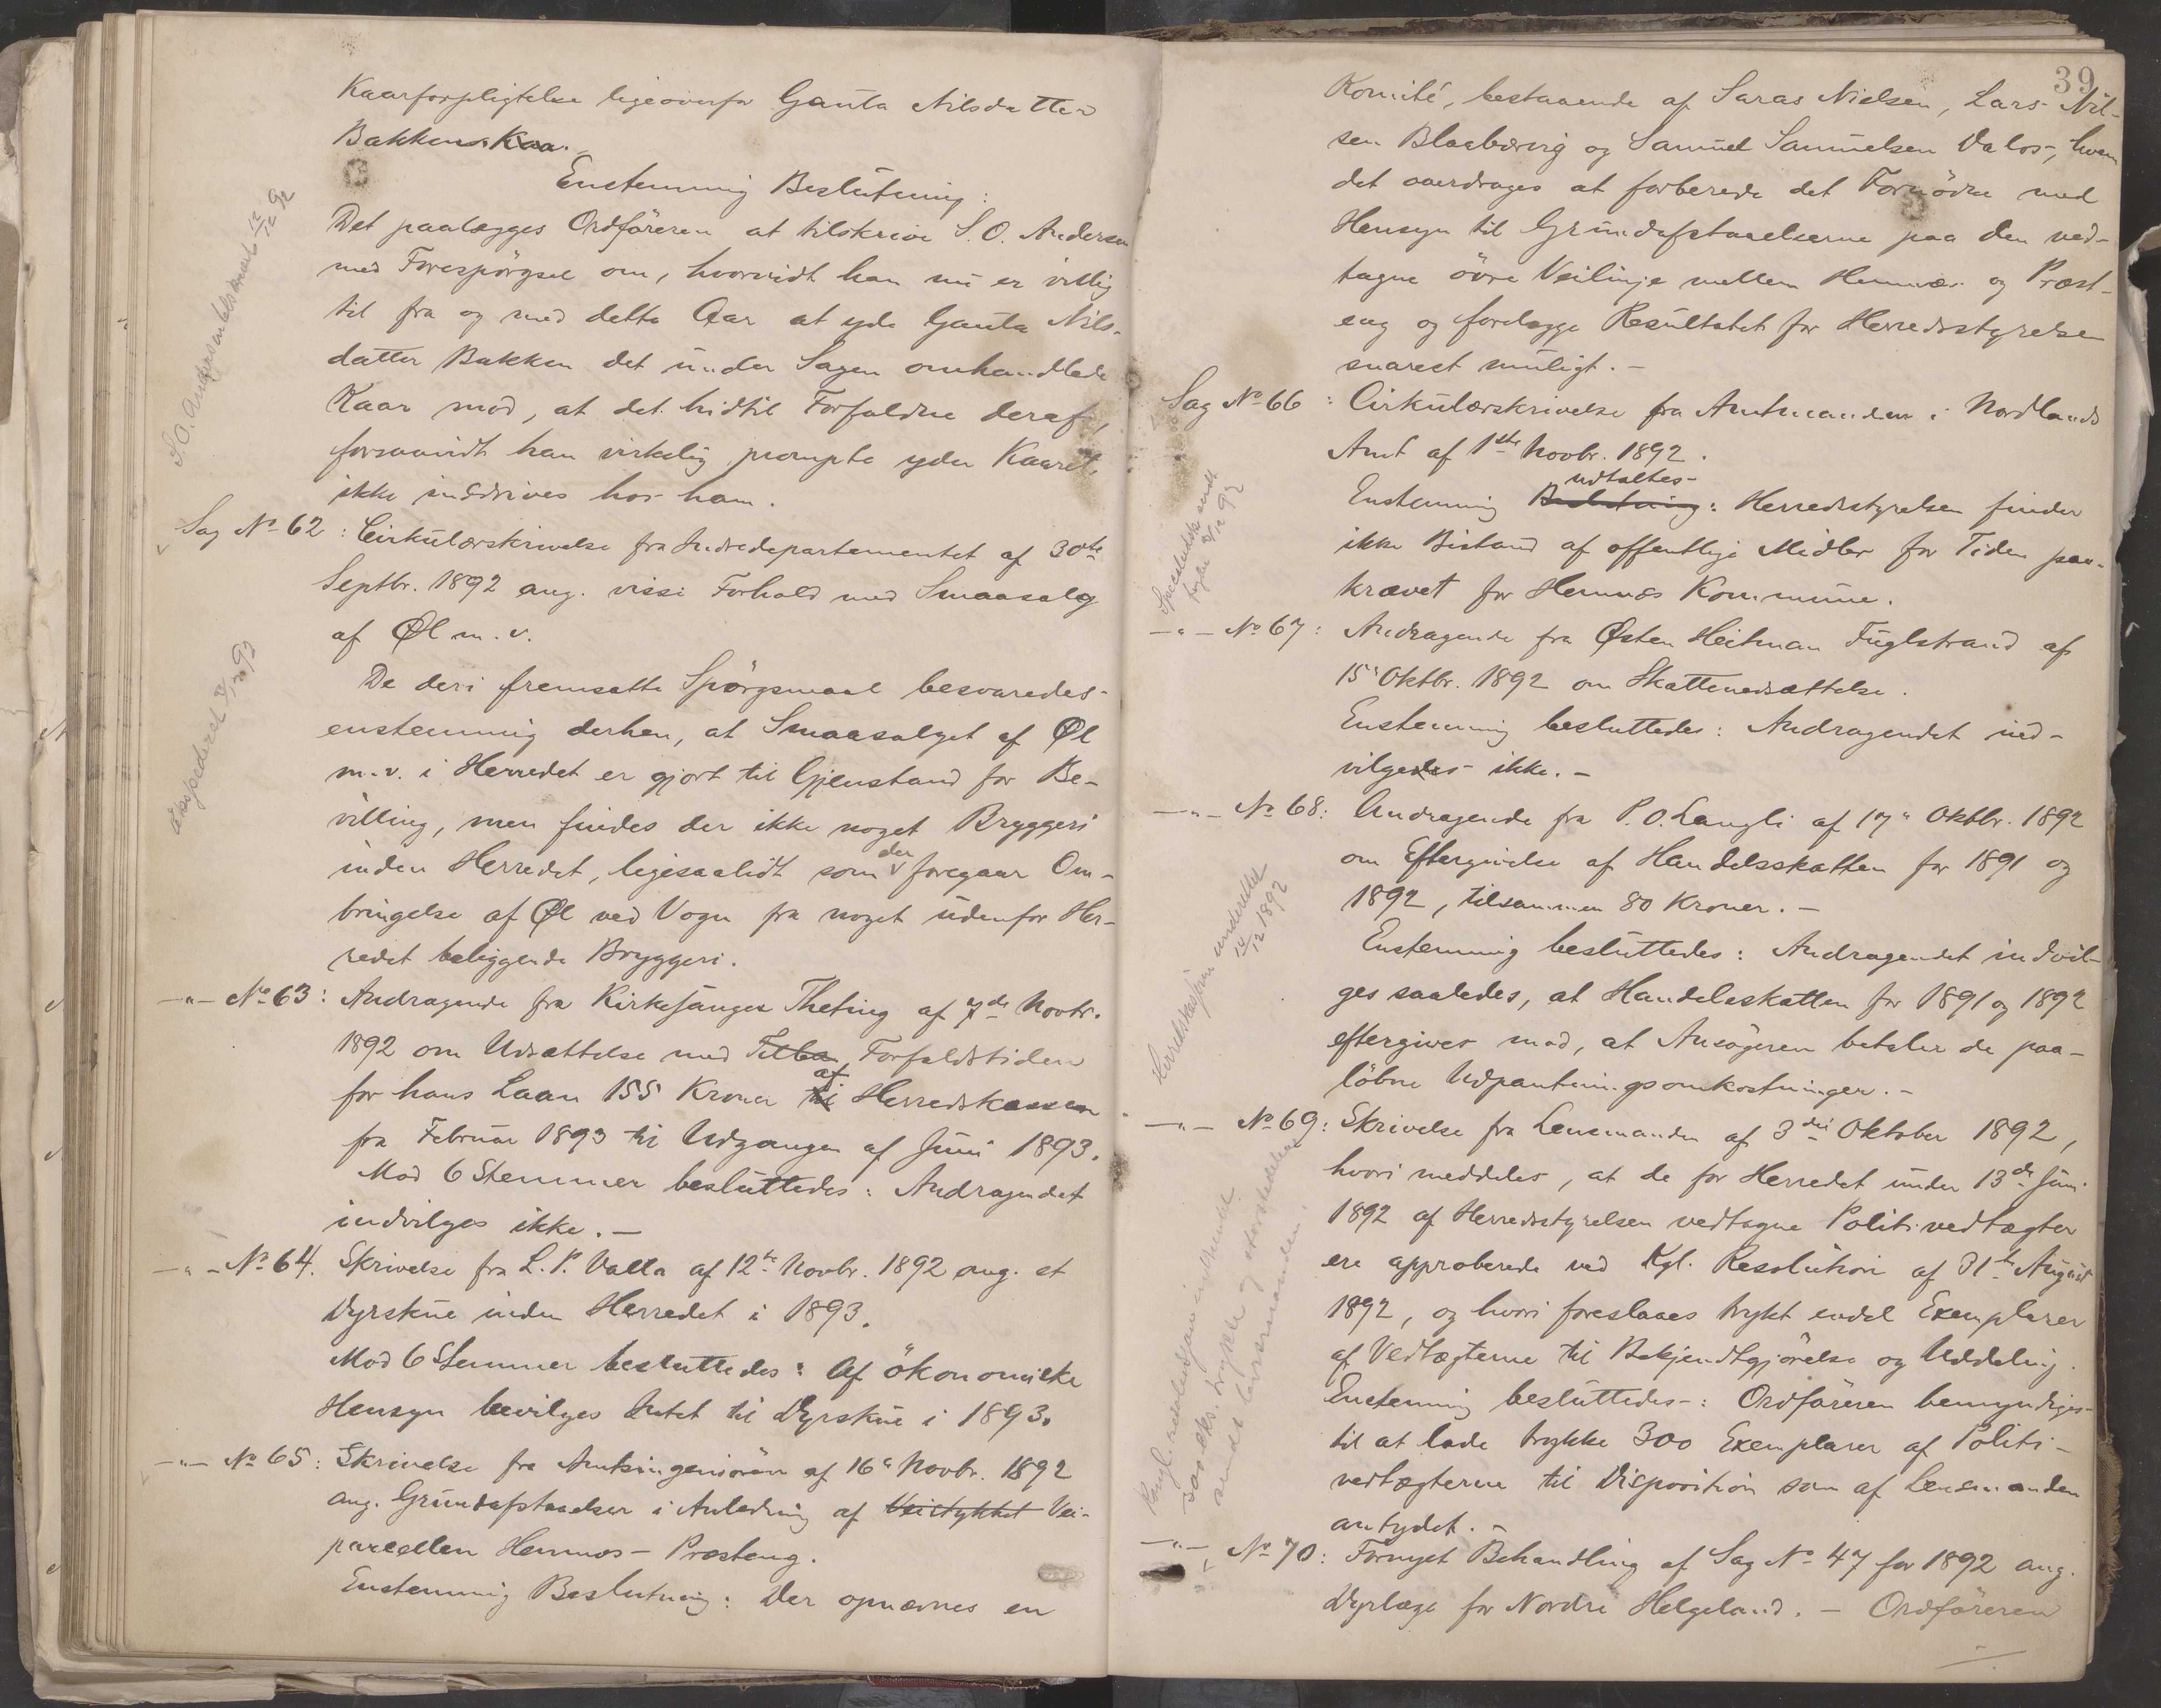 Kaarforpligtelse ligeoverfor Gunla Nilsdatter
Bakken.
Enstemmig Beslutning:
Det paalægges Ordföreren at tilskrive S. O. Andersen
med Forespörgsel om, hvorvidt han nu er villig
til fra og med dette Aar at yde Gunla Nils-
datter Bakken det under Sagen omhandlede
Kaar mod, at det hidtil Forfaldne deraf,
forsaavidt han virkelig prompte yder Kaaret,
ikke inddrives hos ham.
Sag No 62: Cirkulærskrivelse fra Indredepartementet af 30te
Septbr. 1892 ang. visse Forhold med Smaasalg
af Øl m. v.
De deri fremsatte Spörgsmaal besvaredes
enstemmig derhen, at Smaasalget af Øl
m. v. i Herredet er gjort til Gjenstand for Be-
villing, men findes der ikke noget Bryggeri
inden Herredet, ligesaalidt som der foregaar Om-
bringelse af Øl ved Vogn fra noget udenfor Her-
redet beliggende Bryggeri.
—"— No 63: Andragende fra Kirkesanger Theting af 7de Novbr.
1892 om Udsættelse med Forfaldstiden
for hans Laan 155 Kroner af Herredskassen
fra Februar 1893 til Udgangen af Juni 1893.
Mod 6 Stemmer besluttedes: Andragendet
indvilges ikke. —
—"— No 64. Skrivelse fra L. P. Valla af 12te Novbr. 1892 ang. et
Dyrskue inden Herredet i 1893.
Mod 6 Stemmer besluttedes: Af ökonomiske
Hensyn bevilges Intet til Dyrskue i 1893.
—"— No 65: Skrivelse fra Amtsingeniören af 16" Novbr. 1892
ang. Grundafstaaelser i Anledning af Veistykket Vei-
parcellen Hemnes – Præsteng.
Enstemmig Beslutning: Der opnævnes en
S. O. Andersen tilskrevet 12/12 92
Expederet 12/12 92
39
Komité, bestaaende af Saras Nielsen, Lars Nil-
sen Blaabærvig og Samuel Samuelsen Valos, hvem
det overdrages at forberede det Fornödne med
Hensyn til Grundafstaaelserne paa den ved-
tagne övre Veilinje mellem Hemnæs og Præst-
eng og forelægge Resultatet for Herredsstyrelsen
snarest muligt. —
Sag No 66: Cirkulærskrivelse fra Amtmanden i Nordlands
Amt af 1ste Novbr. 1892.
Enstemmig Beslutning udtaltes: Herredsstyrelsen finder
ikke Bistand af offentlige Midler for Tiden paa-
krævet for Hemnæs Kommune.
—"— No 67: Andragende fra Østen Heitman Fuglstrand af
15" Oktbr. 1892 om Skattenedsættelse.
Enstemmig besluttedes: Andragendet ind-
vilgedes ikke. —
—"— No 68: Andragende fra P. O. Langli af 17" Oktbr. 1892
om Eftergivelse af Handelsskatten for 1891 og
1892, tilsammen 80 Kroner. —
Enstemmig besluttedes: Andragendet indvil-
ges saaledes, at Handelsskatten for 1891 og 1892
eftergives mod, at Ansögeren betaler de paa-
löbne Udpantningsomkostninger. —
—"— No 69: Skrivelse fra Lensmanden af 3die Oktober 1892,
hvori meddeles, at de for Herredet under 13de Juni
1892 af Herredsstyrelsen vedtagne Politivedtægter
ere approberede ved Kgl. Resolution af 31te August
1892, og hvori foreslaaes trykt endel Exemplarer
af Vedtægterne til Bekjendtgjörelse og Uddeling.
Enstemmig besluttedes: Ordföreren bemyndiges
til at lade trykke 300 Exemplarer af Politi-
vedtægterne til Disposition som af Lensmanden
antydet. —
—"— No 70: Fornyet Behandling af Sag No 47 for 1892 ang.
Dyrlæge for Nordre Helgeland. — Ordföreren
Herredskassereren underrettet
12/12 1892